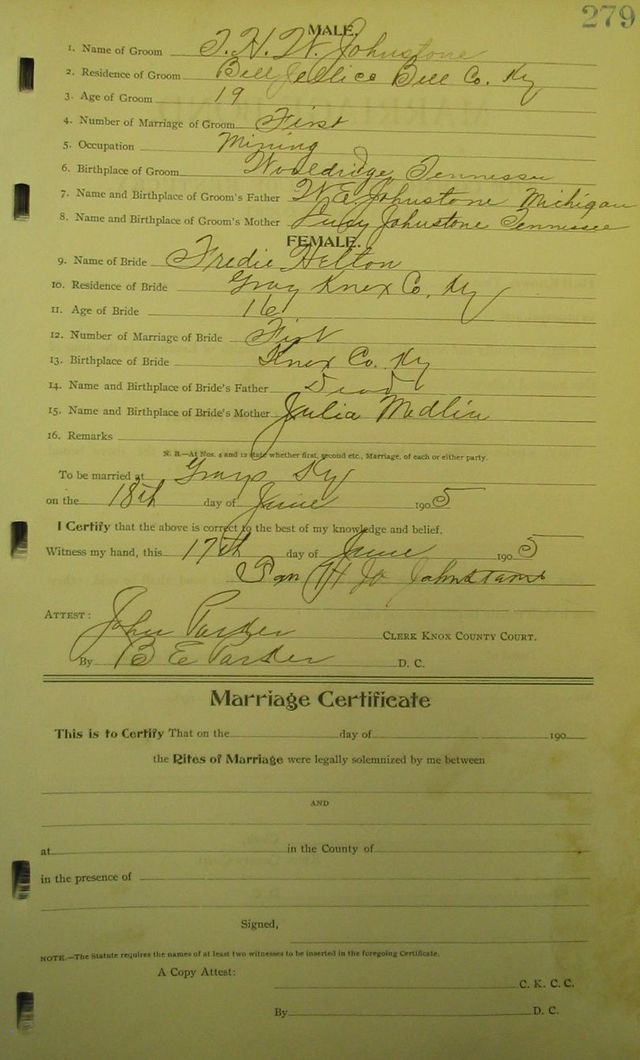 279
MALE.
1. Name of Groom T. H. W. Johnstone
2. Residence of Groom Bell Jellico Bell Co. Ky
3. Age of Groom 19
4. Number of Marriage of Groom First
5. Occupation Mining
6. Birthplace of Groom Wooldridge, Tennessee
7. Name and Birthplace of Groom's Father W. E. Johnstone Michigan
8. Name and Birthplace of Groom's Mother Lucy Johnstone Tennessee
FEMALE.
9. Name of Bride Fredie Helton
10. Residence of Bride Gray Knox Co, Ky
11. Age of Bride 16
12. Number of Marriage of Bride First
13. Birthplace of Bride Knox Co. Ky
14. Name and Birthplace of Bride's Father Dead
15. Name and Birthplace of Bride's Mother Julia Medlin
16. Remarks
N. B.—At Nos. 4 and 12 state whether first, second etc., Marriage, of each or either party.
To be married at Grays Ky
on the 18th day of June 1905
I Certify that the above is correct to the best of my knowledge and belief.
Witness my hand, this 17th day of June 1905
Johnstone
ATTEST: John Parker CLERK KNOX COUNTY COURT.
By B E Parker D. C.
Marriage Certificate
This is to Certify That on the day of 190
the Rites of Marriage were legally solemnized by me between
AND
at in the County of
in the presence of
Signed,
NOTE.—The Statute requires the names of at least two witnesses to be inserted in the foregoing Certificate.
A Copy Attest:
C. K. C. C.
By D. C.